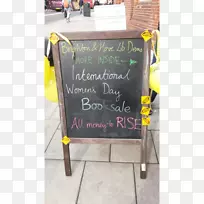 Brighton & Hove Lib Dems
MORE INSIDE
International
Women's Day
Book sale
All money to RISE